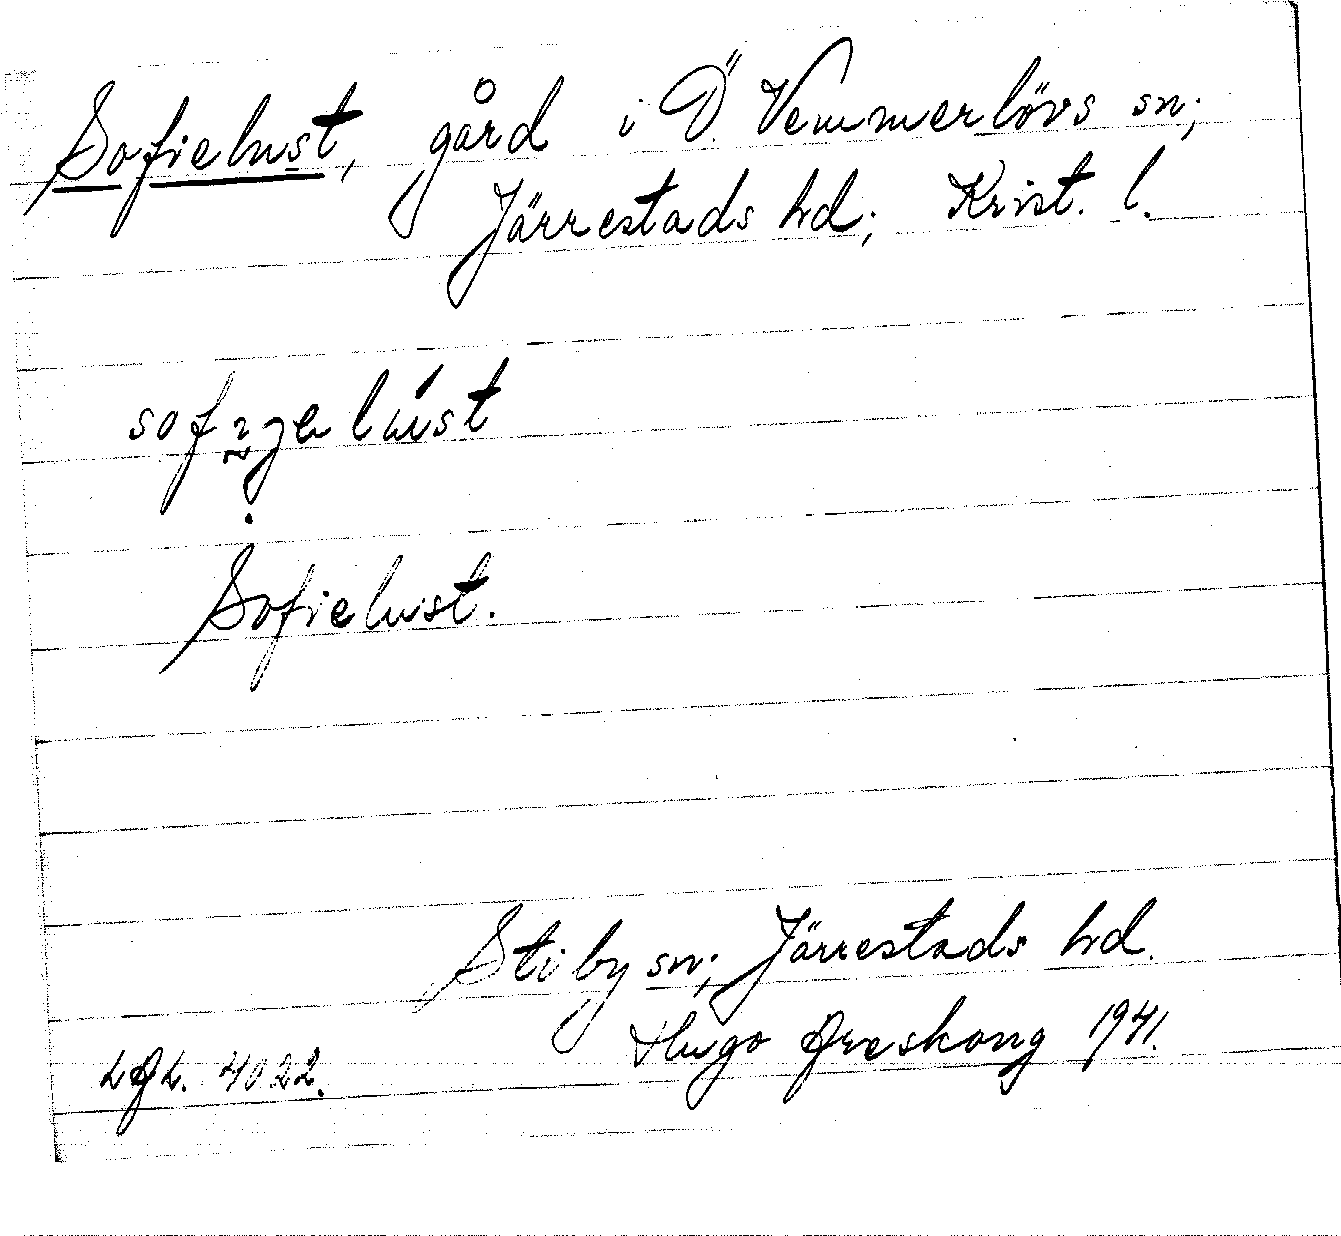 Sofielust, gård i Ö. Vemmerlövs sn;
Järrestads hd; Krist. l.
Sofielust.
Stiby sn; Järrestads hd.
Hugo Areskoug 1941.
LAL. 4022.